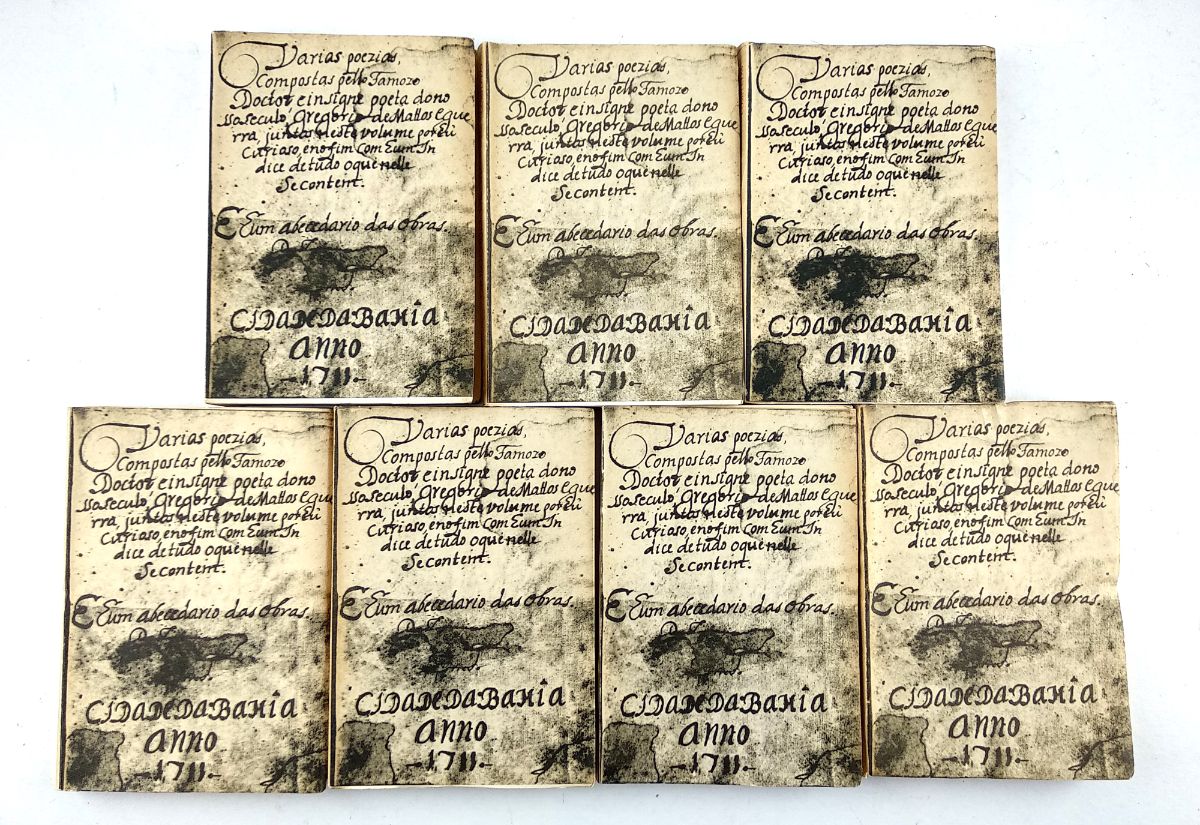 Varias poezias,
Compostas pello Famozo
Doctor e insigne poeta do no
sso seculo, Gregorio de Mattos e gue
rra, juntas neste volume por hũ
Curiozo, e no fim com hum In
dice de tudo o que nelle
Se contem.
E hum abecedario das obras.
CIDADE DA BAHIA
ANNO
-1711-
Varias poezias,
Compostas pello Famozo
Doctor e insigne poeta do no
sso seculo, Gregorio de Mattos e gue
rra, juntas neste volume por hũ
Curiozo, e no fim com hum In
dice de tudo o que nelle
Se contem.
E hum abecedario das obras.
CIDADE DA BAHIA
ANNO
-1711-
Varias poezias,
Compostas pello Famozo
Doctor e insigne poeta do no
sso seculo, Gregorio de Mattos e gue
rra, juntas neste volume por hũ
Curiozo, e no fim com hum In
dice de tudo o que nelle
Se contem.
E hum abecedario das obras.
CIDADE DA BAHIA
ANNO
-1711-
Varias poezias,
Compostas pello Famozo
Doctor e insigne poeta do no
sso seculo, Gregorio de Mattos e gue
rra, juntas neste volume por hũ
Curiozo, e no fim com hum In
dice de tudo o que nelle
Se contem.
E hum abecedario das obras.
CIDADE DA BAHIA
ANNO
-1711-
Varias poezias,
Compostas pello Famozo
Doctor e insigne poeta do no
sso seculo, Gregorio de Mattos e gue
rra, juntas neste volume por hũ
Curiozo, e no fim com hum In
dice de tudo o que nelle
Se contem.
E hum abecedario das obras.
CIDADE DA BAHIA
ANNO
-1711-
Varias poezias,
Compostas pello Famozo
Doctor e insigne poeta do no
sso seculo, Gregorio de Mattos e gue
rra, juntas neste volume por hũ
Curiozo, e no fim com hum In
dice de tudo o que nelle
Se contem.
E hum abecedario das obras.
CIDADE DA BAHIA
ANNO
-1711-
Varias poezias,
Compostas pello Famozo
Doctor e insigne poeta do no
sso seculo, Gregorio de Mattos e gue
rra, juntas neste volume por hũ
Curiozo, e no fim com hum In
dice de tudo o que nelle
Se contem.
E hum abecedario das obras.
CIDADE DA BAHIA
ANNO
-1711-